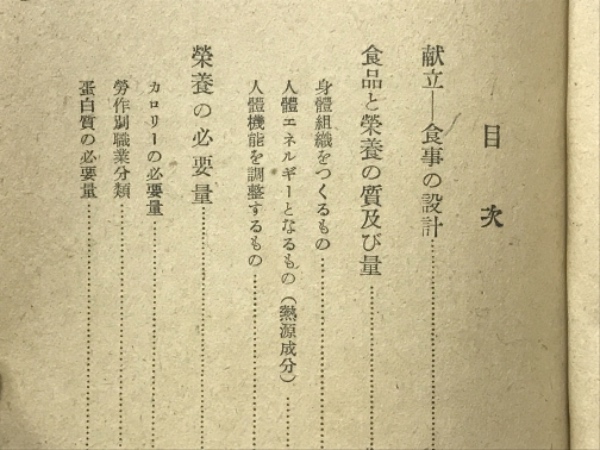 目次
献立―食事の設計
食品と榮養の質及び量
身體組織をつくるもの
人體エネルギーとなるもの(熱源成分)
人體機能を調整するもの
榮養の必要量
カロリーの必要量
勞作別職業分類
蛋白質の必要量